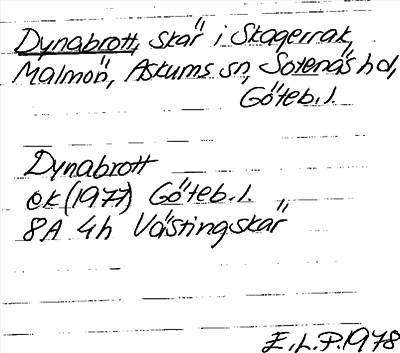 Dynabrott, skär i Skagerrak,
Malmön, Askums sn, Sotenäs hd,
Göteb. l.
Dynabrott
ek (1977) Göteb. l.
8A 4h Västingskär
E.L.P. 1978